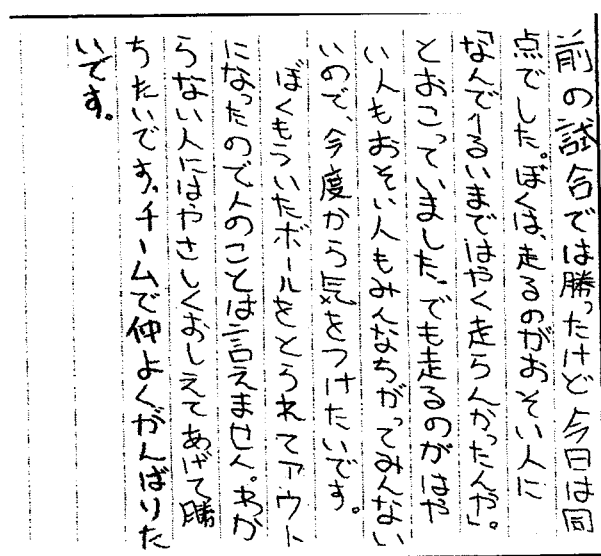 前の試合では勝ったけど今日は同
点でした。ぼくは、走るのがおそい人に
「なんで1るいまではやく走らんかったんや」。
とおこっていました。でも走るのがはや
い人もおそい人もみんなちがってみんない
いので、今度から気をつけたいです。
ぼくもういたボールをとられてアウト
になったので人のことは言えません。わか
らない人にはやさしくおしえてあげて勝
ちたいです。チームで仲よくがんばりた
いです。